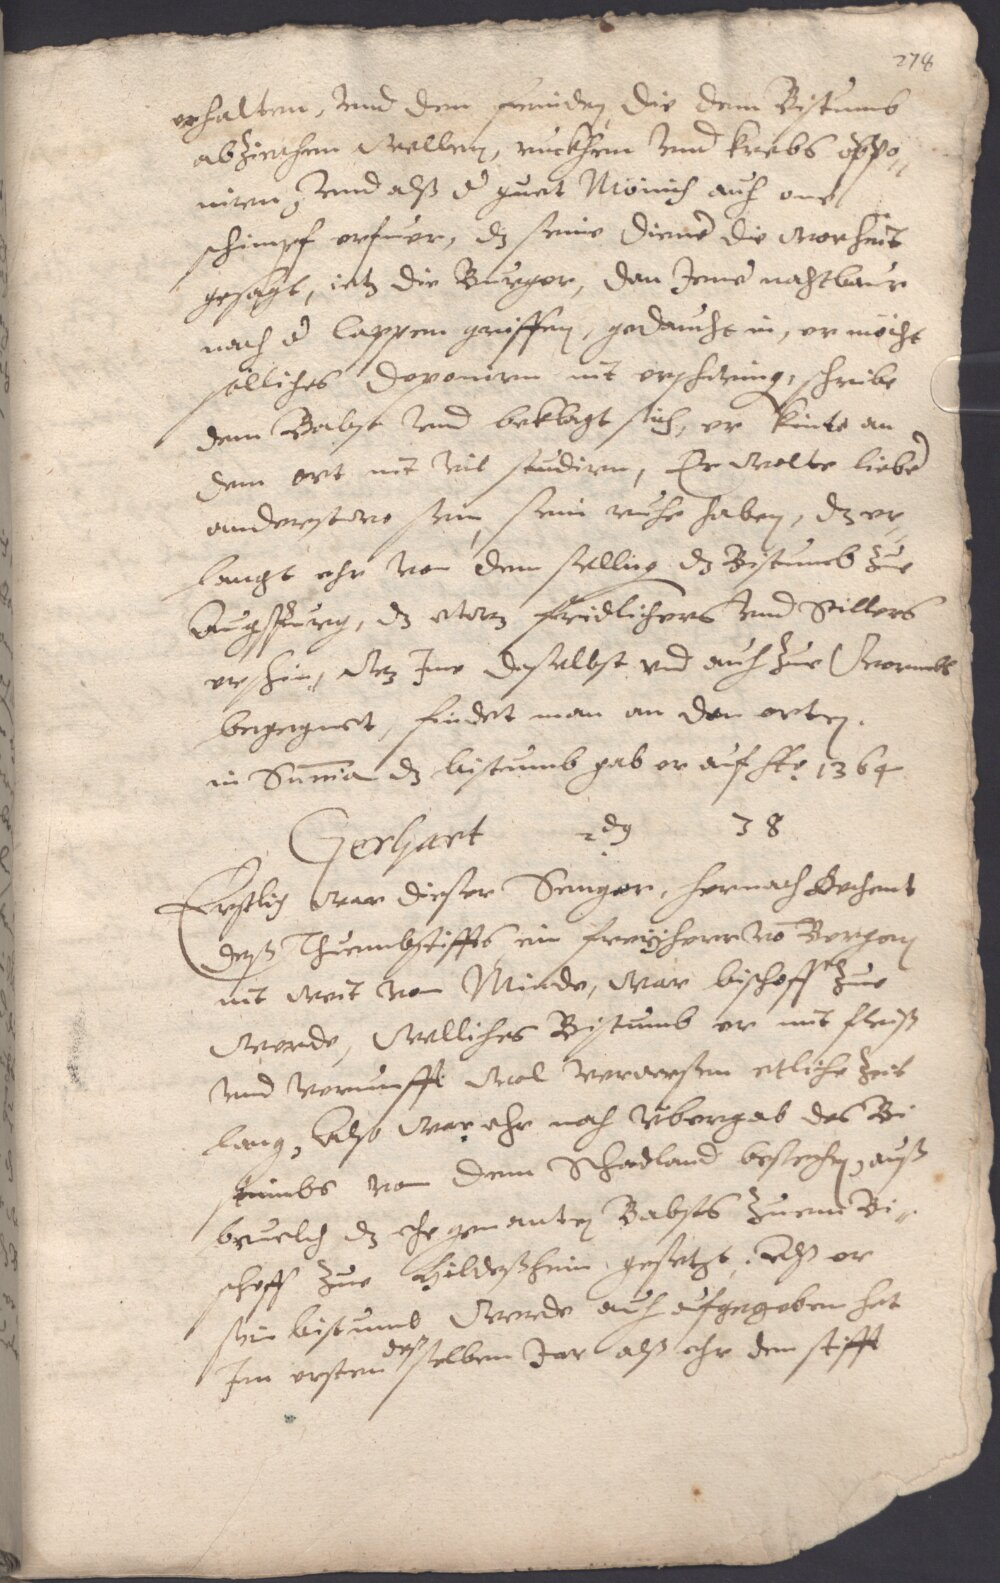 278
erhalten, vnd den feinden, die dem Bistumb
abziechen wellen, ruckhen vnd krebs oppo„
niren, vnd alß d guet Mönich auch one
schimpf erfuer, dz seine diener die worheit
gesagt, ietz die Burger, dan Jene nachtbaur
nach d lappen griffen, gedaucht in, er möcht
solliches deponirn nit, schreibt
dem Babst vnd beklagt sich, er kinte an
dem ort nit vil studiern, Er wolte lieber
anderstwo sein, sein ruhe haben, dz er„
langt ehr von dem selbigen dz Bistumb zue
Augspurg, dz etwz fridlichers vnd stillers
erschin, wz Ime daselbst vnd auch zue Wormbs
begegnet, findet man an den orten.
in Summa dz bistumb gab er auf 1364
Gerhart 38
Erstlich war dieser Senger, hernach Dechent
deß Thuembstiffts, ein freyherr vo Bergen
nit weit von Minde, war bischoff zue
Werde, welliches Bistumb er mit fleiß
vnd vernunfft wol verwesen etliche Zeit
lang, Alß war ehr nach vbergab des Bi
stumbs von dem Schadland beschechen, auß
beuelch dz ehegenanten Babsts zuem Bi„
schoff zue Hildeßheim gesetzt, Alß er
sein bistumb Werde auch aufgegeben hat
Im ersten desselben Jar alß ehr dem stifft